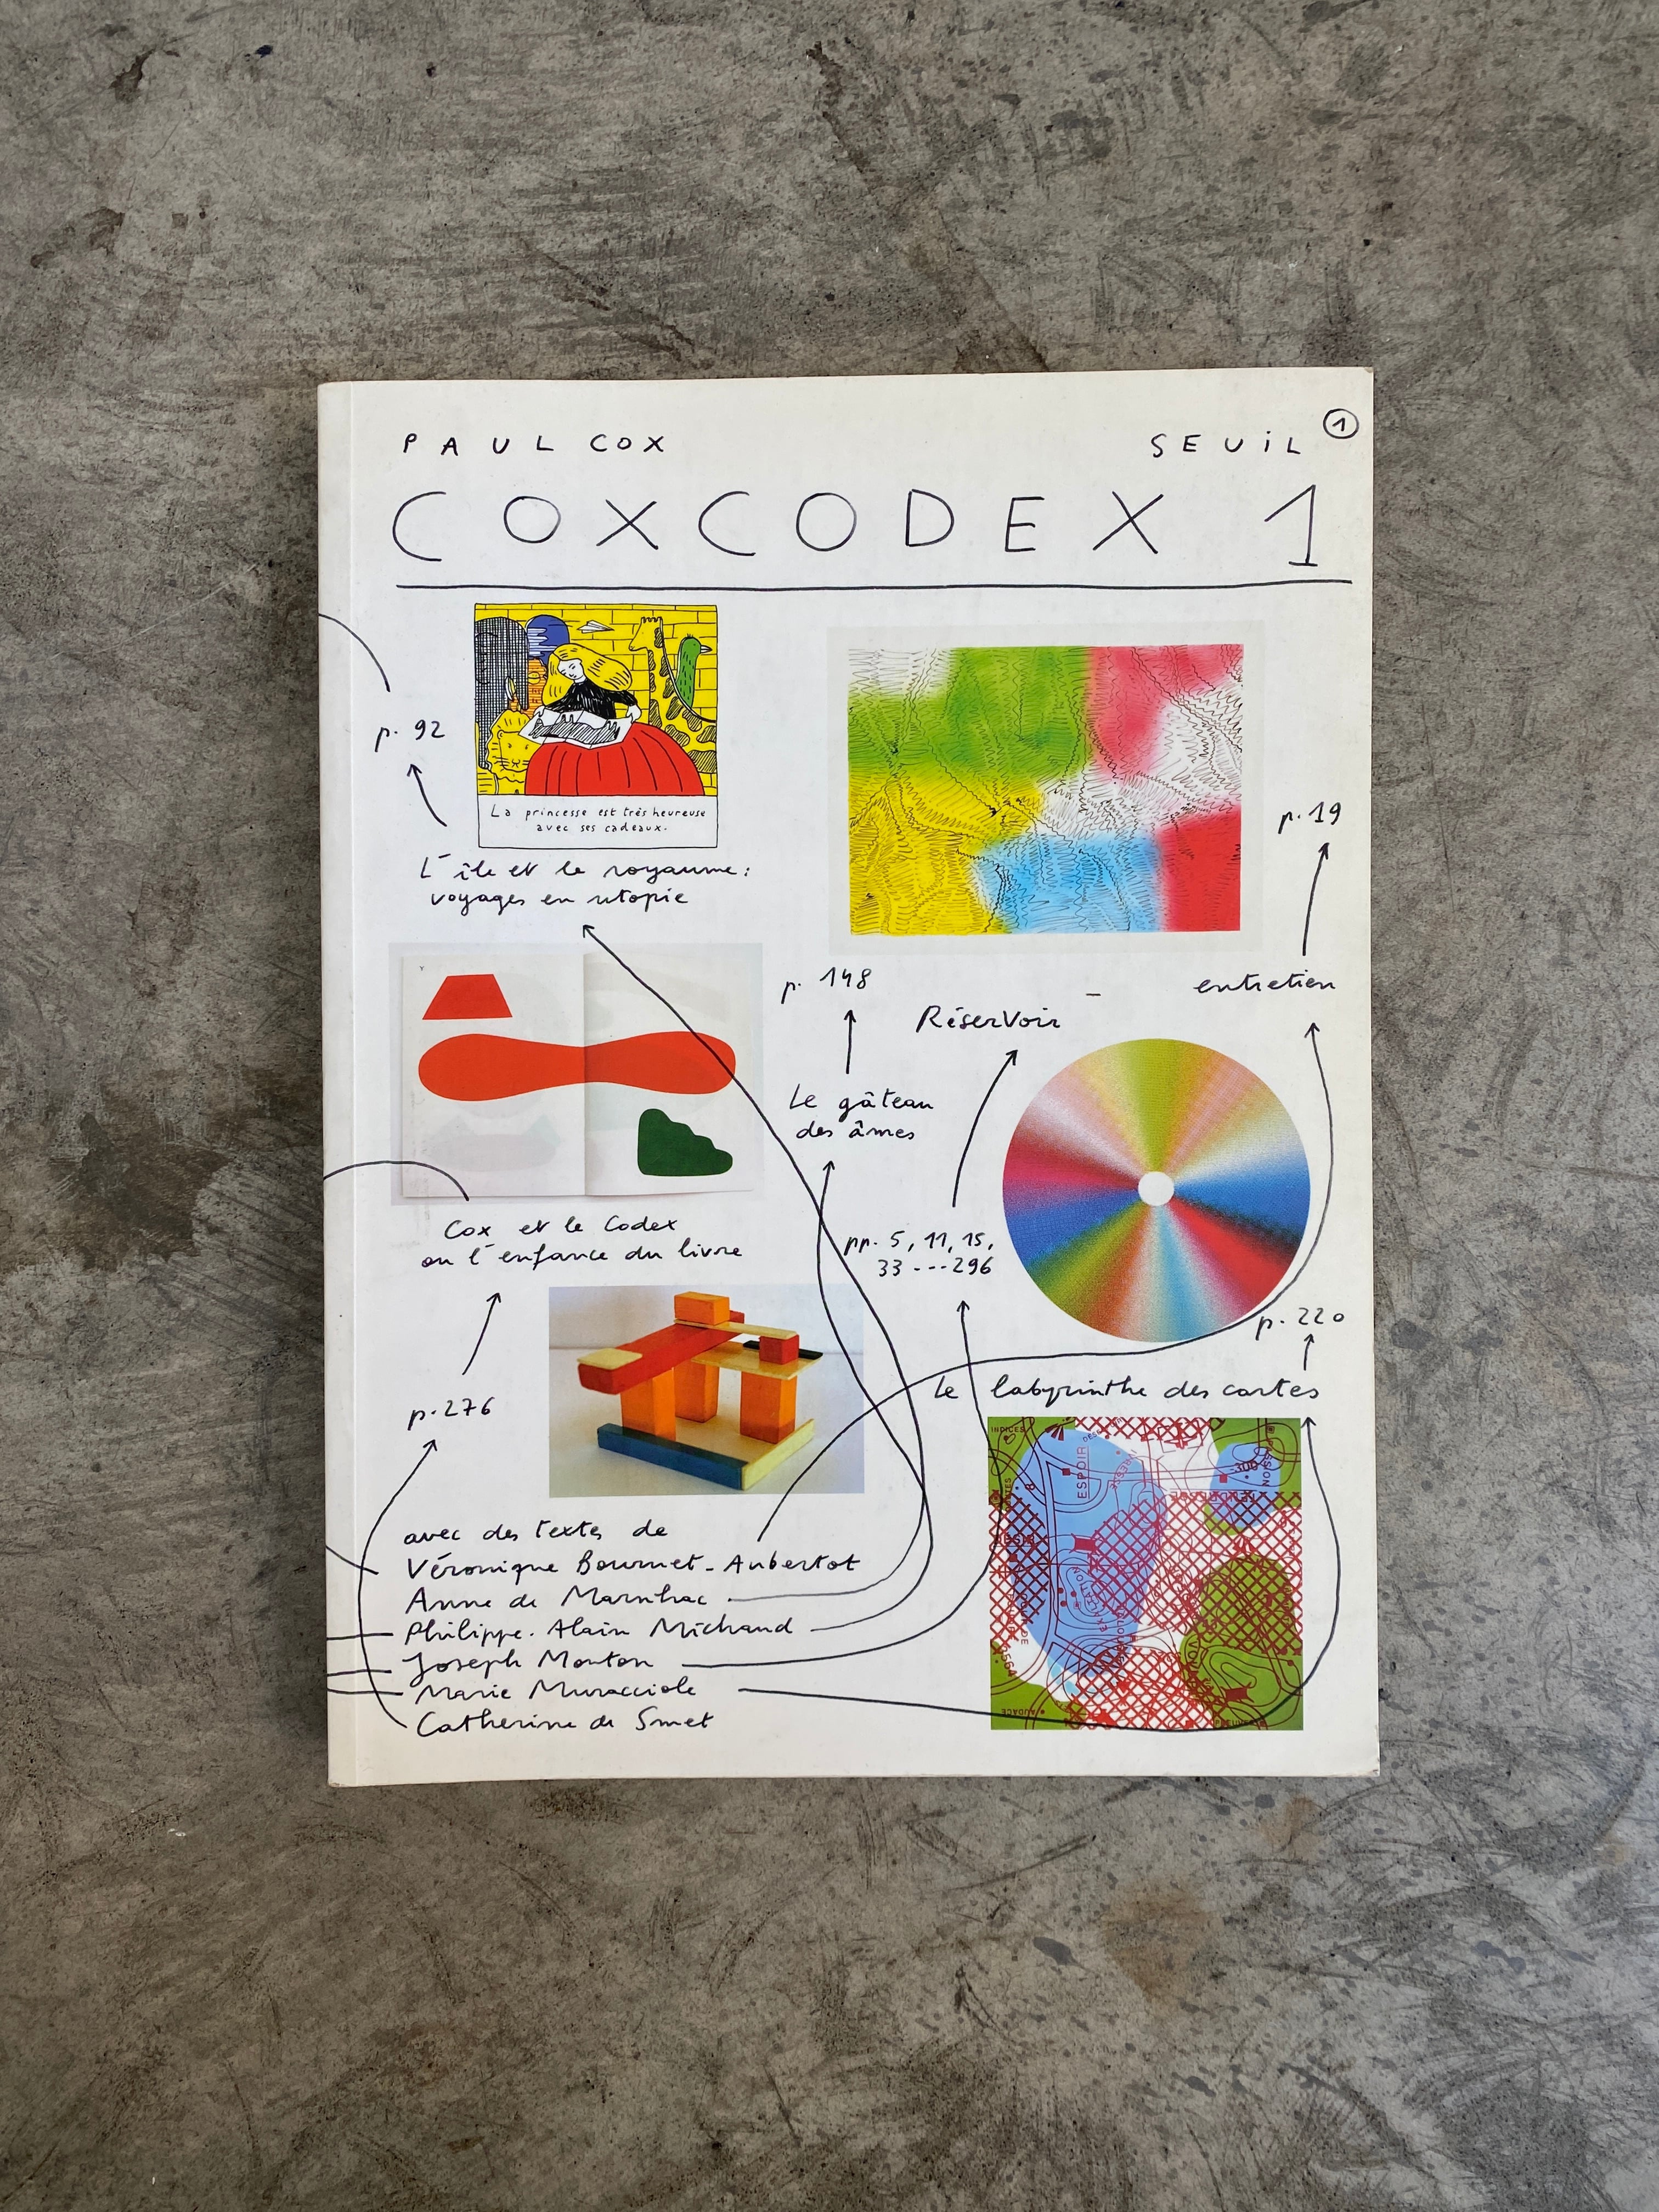 PAUL COX
SEUiL 1
COXCODEX 1
La princesse est très heureuse
avec ses cadeaux.
p. 92
L'île et le royaume:
voyages en utopie
p. 19
entretien
p. 148
Réservoir
Le gâteau
des âmes
pp. 5, 11, 15,
33---296
Cox et le Codex
ou l'enfance du livre
p. 276
p. 220
Le labyrinthe des cartes
INDICES
ESPOIR
-300
AUDACE
avec des textes de
Véronique Bournet-Aubertot
Anne de Marnhac
Philippe-Alain Michaud
Joseph Mouton
Marie Muracciole
Catherine de Smet